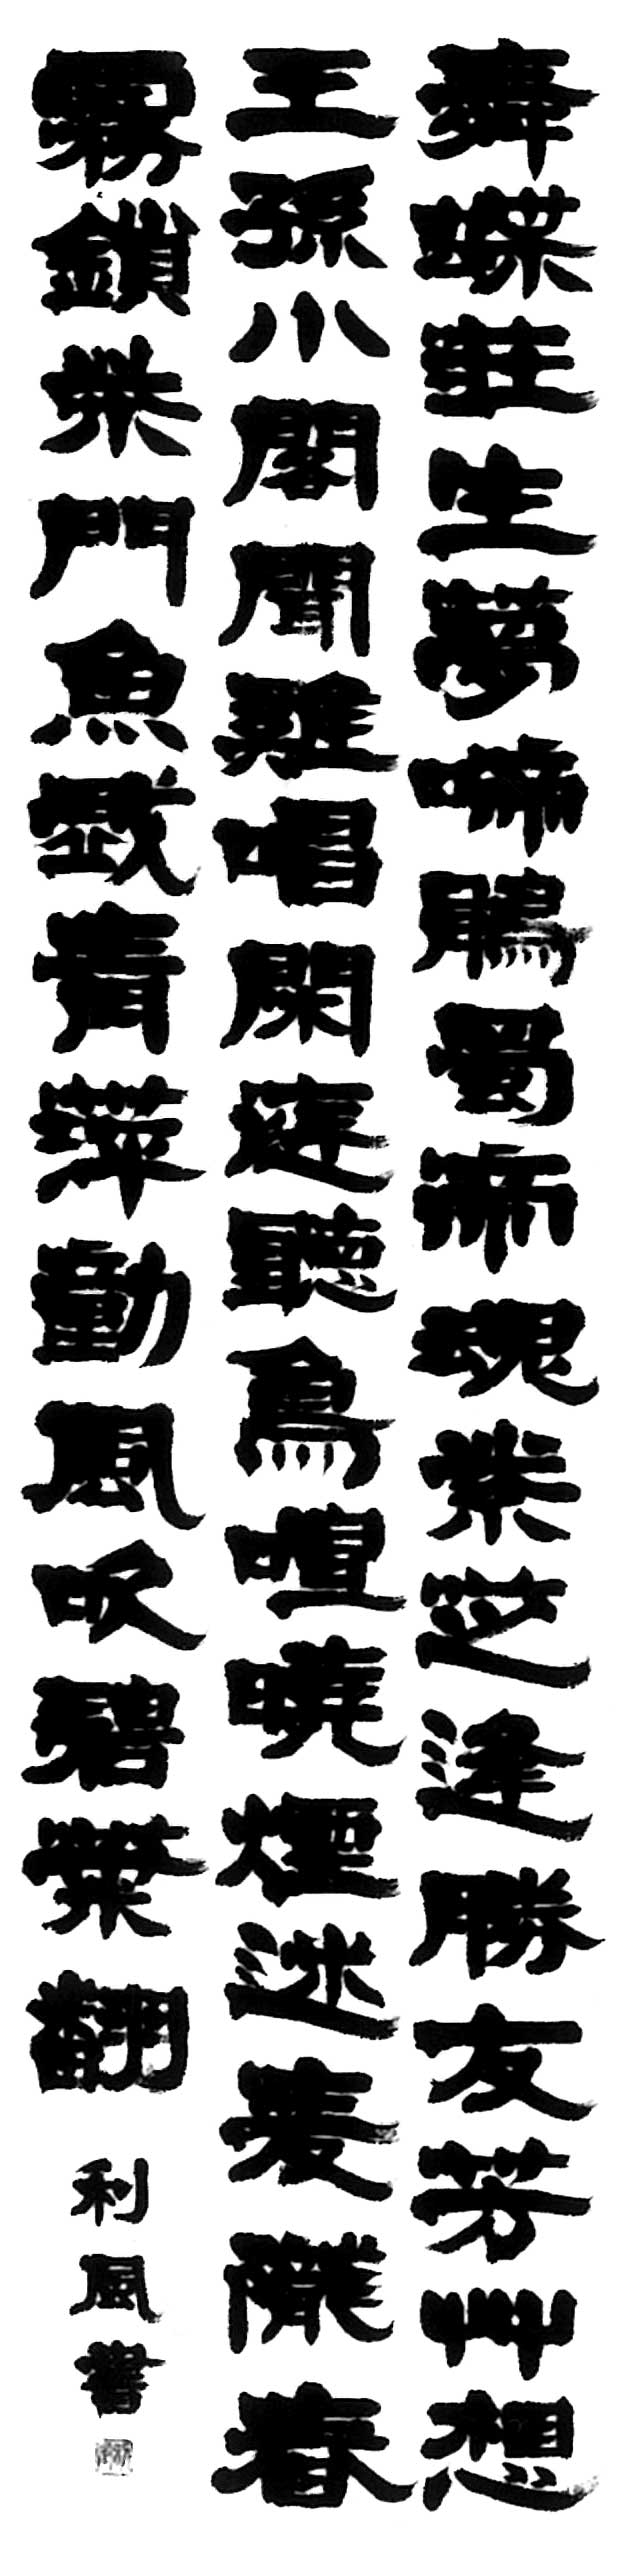 舞蝶莊生夢啼鵑蜀帝魂紫芝逢勝友芳艸想
王孫小閣聞雞唱閑庭聽鳥喧曉煙迷麦隴春
霧鎖柴門魚戲青萍動風吹碧葉翻
利風書